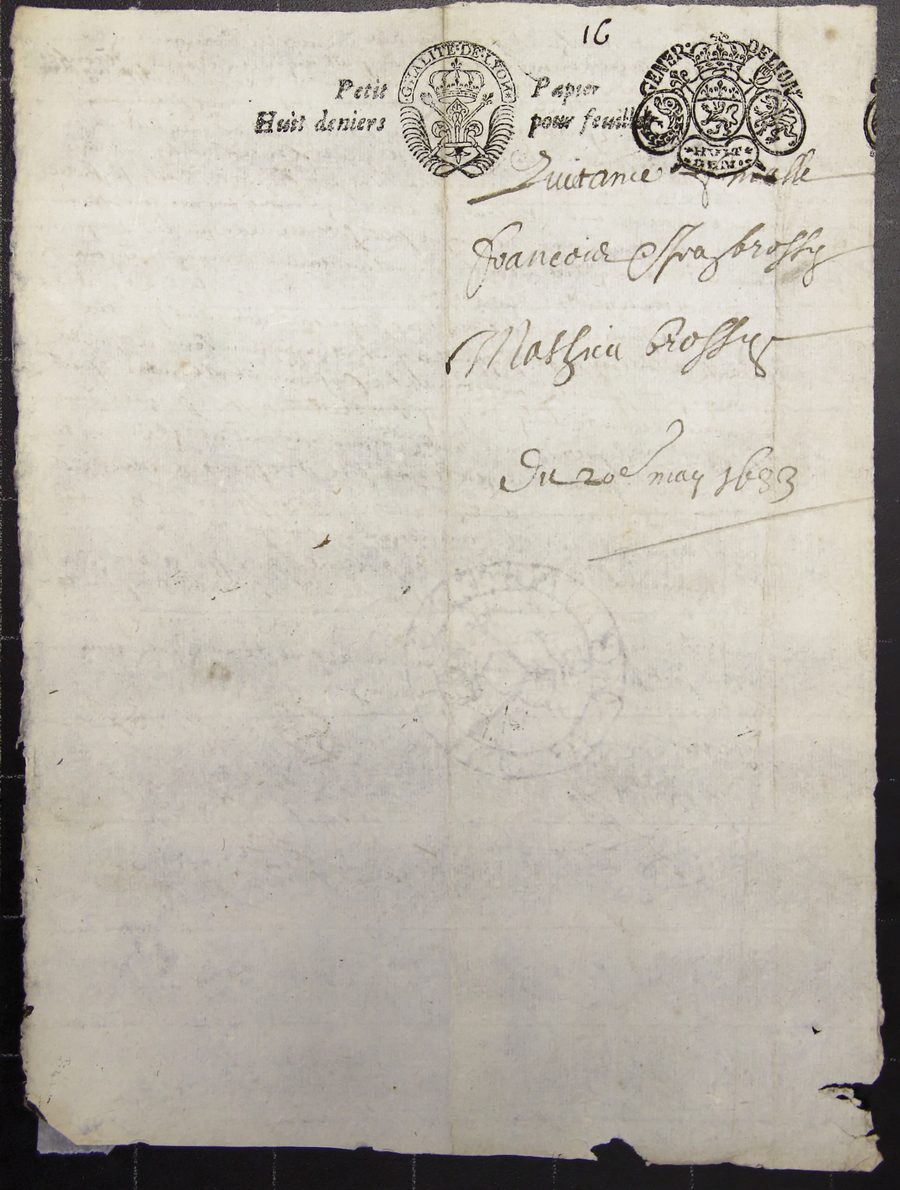 16
Petit Papier
Huit deniers pour feuillet
G·RALITE·DE·LYON
GENER· DE LION
HUIT
DEN
Quitance finalle
francois brossy
Mathieu brossy
Du 20e may 1683